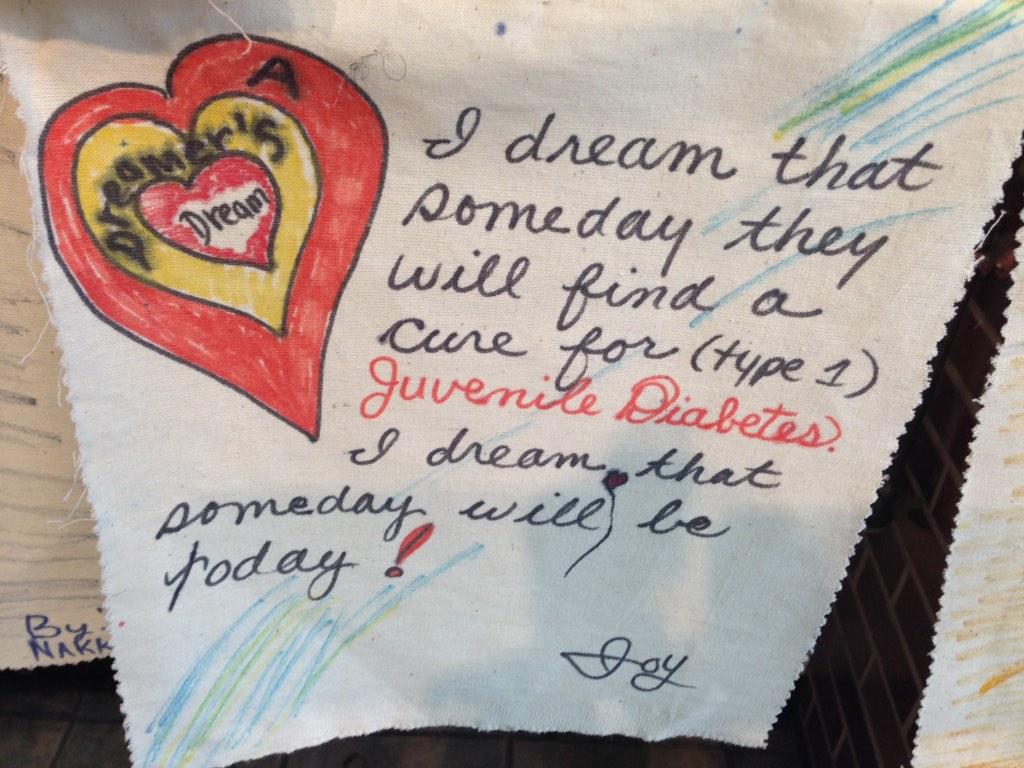 A
Dreamer's
Dream
I dream that
someday they
will find a
cure for (type 1)
Juvenile Diabetes.
I dream that
someday will be
today!
Joy
By